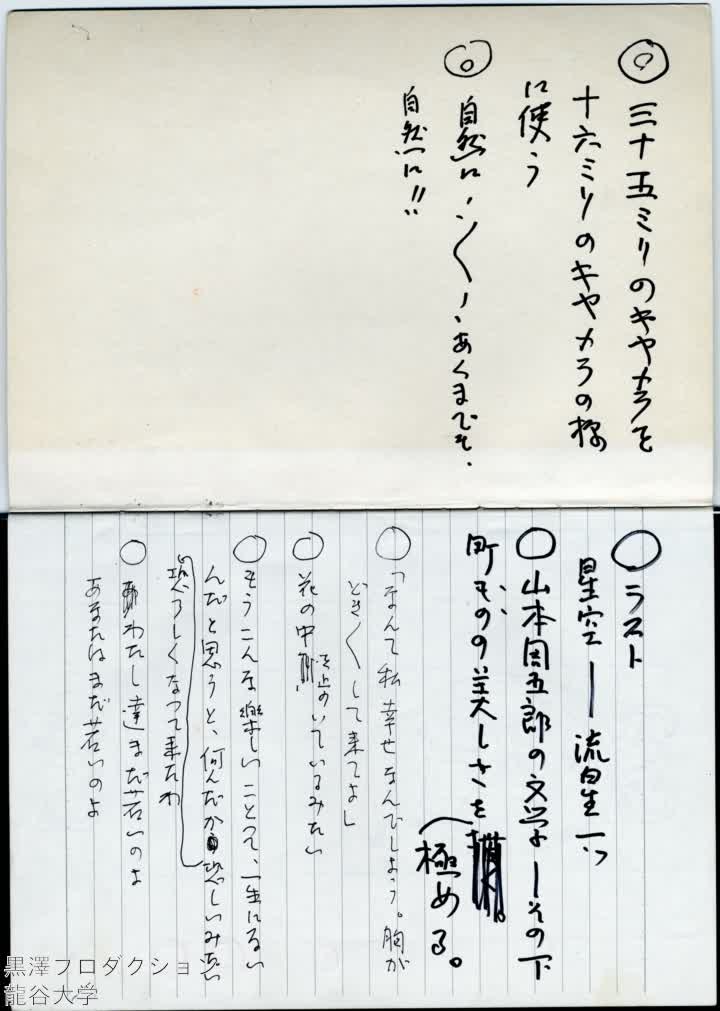 ◎ 三十五ミリのキャメラを
十六ミリのキャメラの様
に使う
◎ 自然に、〱、、あくまでも、
自然に!!
○ ラスト
星空 ― 流星一つ
○ 山本周五郎の文学 ― その下
町ものの美しさを
極める。
○ 「なんて私幸せなんでしょう。胸が
どき〱して来てよ」
○ 花の中
いているみたい
○ もうこんな楽しいことって、一生にない
んだと思うと、何んだか 悲しいみたい
恐ろしくなって来たわ
○ わたし達まだ若いのよ
あなたはまだ若いのよ
黒澤プロダクション
龍谷大学